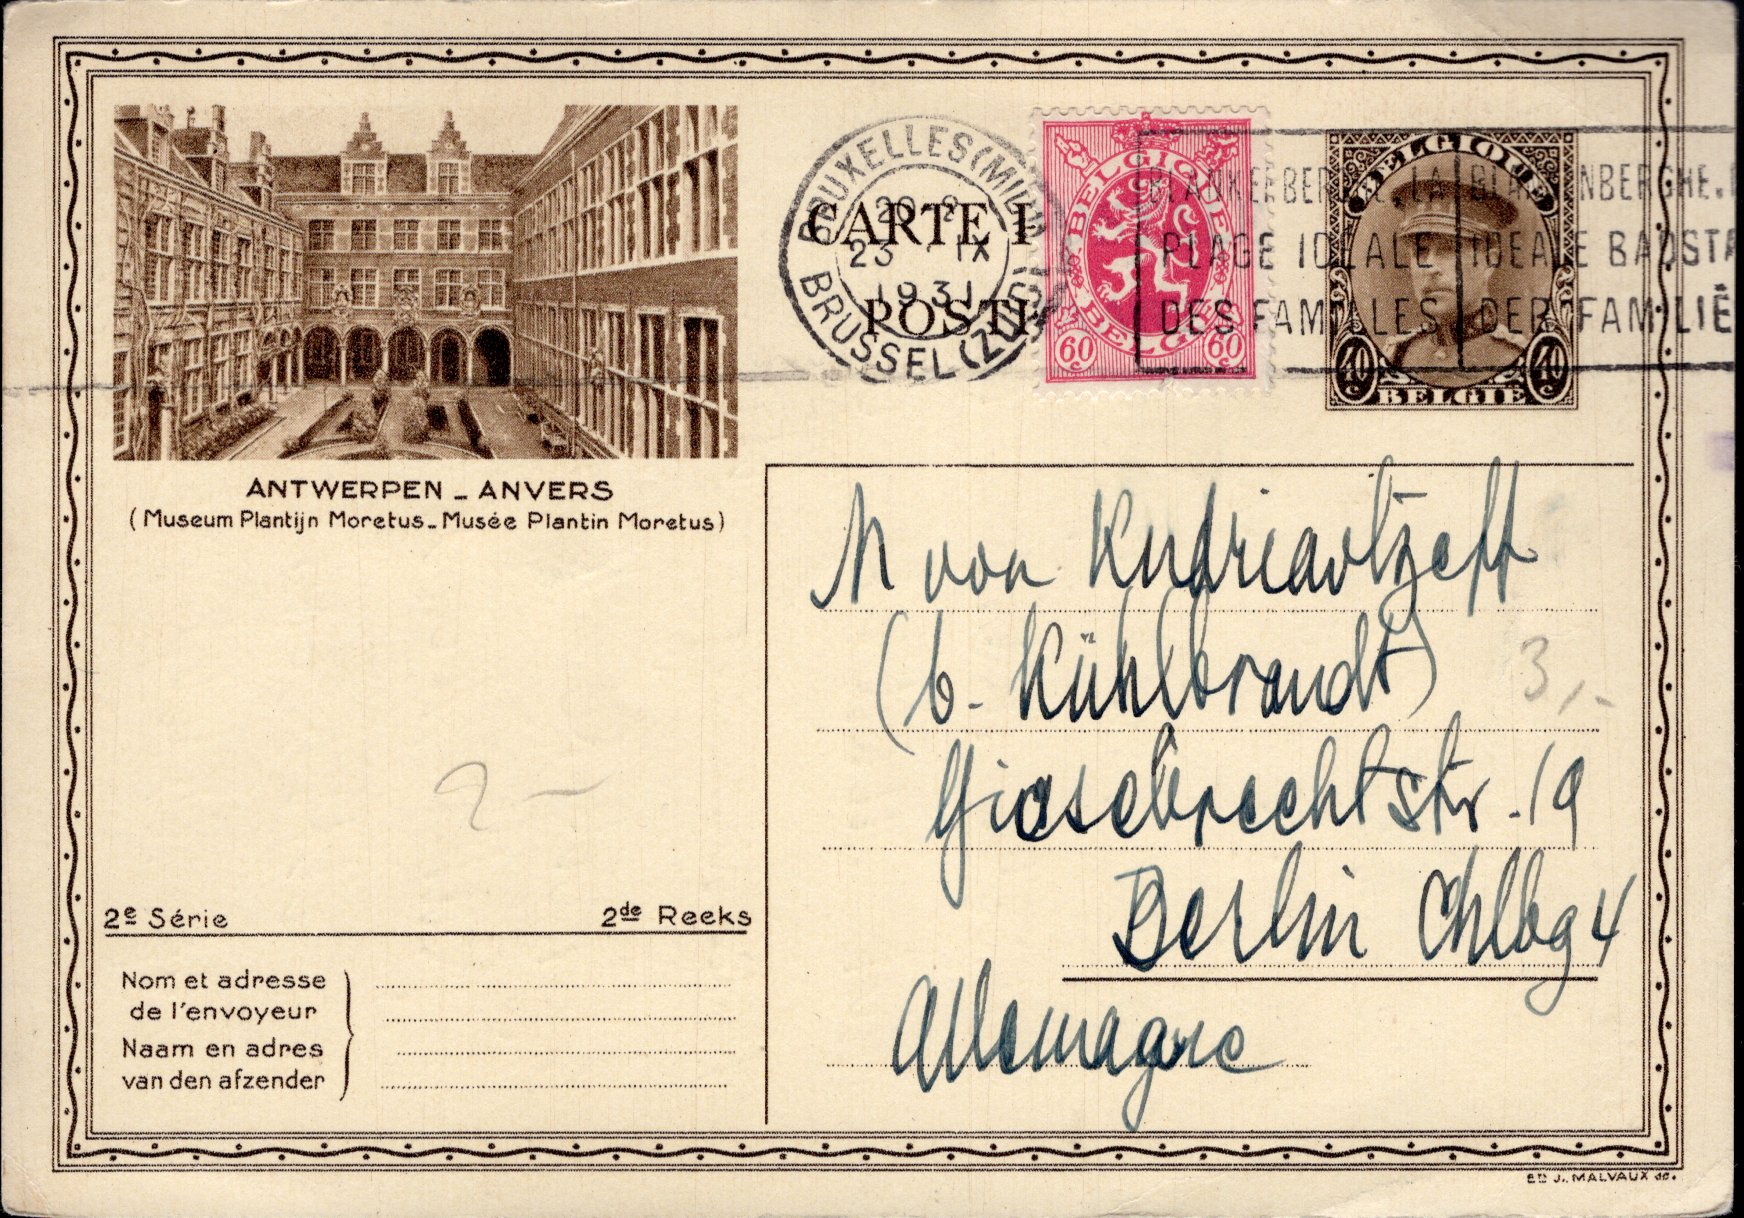 BRUXELLES (MIDI)
BRUSSEL (ZUID)
23 IX
1931
CARTE P
POSTA
BELGIQUE
BELGIE
60 60
BLANKENBERGHE. LA
PLAGE IDEALE
DES FAMILLES
BLANKENBERGHE.
IDEALE BADSTA
DER FAMILIË
BELGIQUE
40 40
BELGIE
ANTWERPEN - ANVERS
(Museum Plantijn Moretus - Musée Plantin Moretus)
M von Kudriavtzeff
(b. Kühlbrandt)
3,-
Giesebrechtstr. 19
2 -
Berlin Chlbg 4
Allemagne
2e Série 2de Reeks
Nom et adresse
de l'envoyeur
Naam en adres
van den afzender
ED. J. MALVAUX